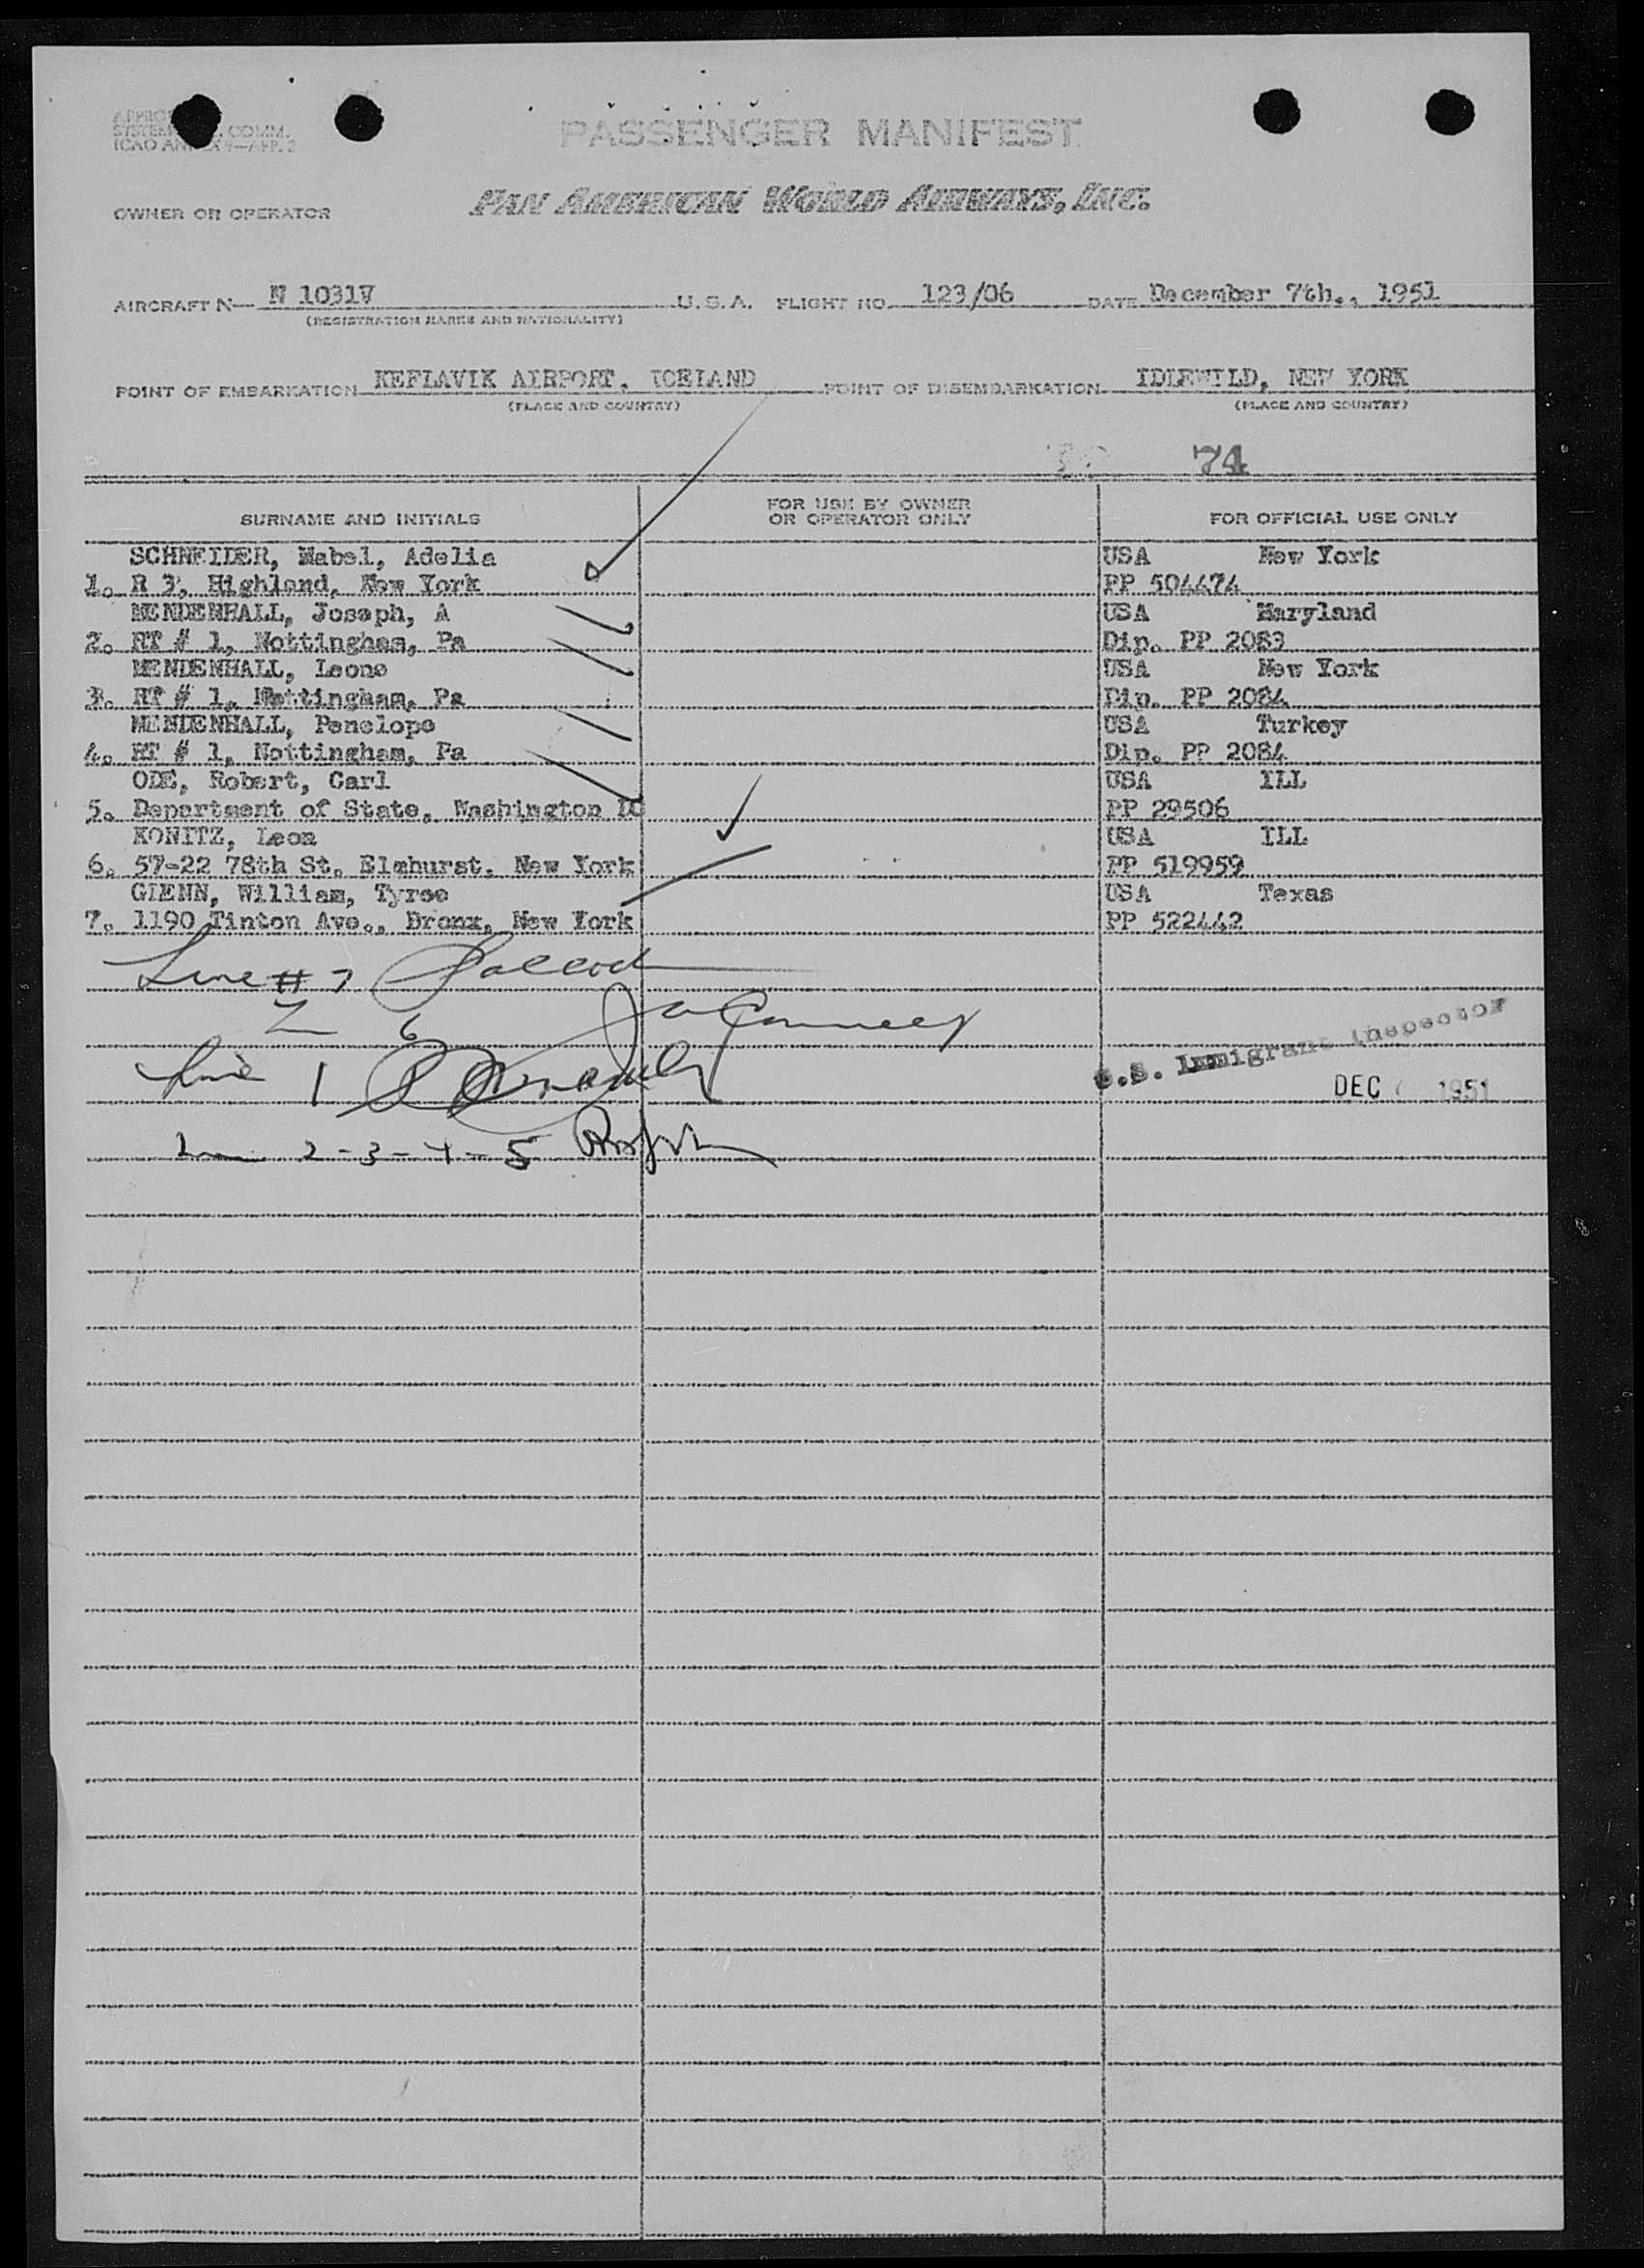 PASSENGER MANIFEST
SYSTEM COMM.
ICAO ANNEX 9—APP. 2
OWNER OR OPERATOR PAN AMERICAN WORLD AIRWAYS, INC.
AIRCRAFT N— N 1031V U.S.A. FLIGHT NO. 123/06 DATE December 7th., 1951
(REGISTRATION MARKS AND NATIONALITY)
POINT OF EMBARKATION KEFLAVIK AIRPORT, ICELAND POINT OF DISEMBARKATION IDLEWILD, NEW YORK
(PLACE AND COUNTRY) (PLACE AND COUNTRY)
74
SURNAME AND INITIALS FOR USE BY OWNER OR OPERATOR ONLY FOR OFFICIAL USE ONLY
SCHNEIDER, Mabel, Adelia USA New York
1. R 3, Highland, New York PP 504474
MENDENHALL, Joseph, A USA Maryland
2. RT # 1, Nottingham, Pa Dip. PP 2083
MENDENHALL, Leone USA New York
3. RT # 1, Nottingham, Pa Dip. PP 2084
MENDENHALL, Penelope USA Turkey
4. RT # 1, Nottingham, Pa Dip. PP 2084
ODE, Robert, Carl USA ILL
5. Department of State, Washington DC PP 29506
KONITZ, Leon USA ILL
6. 57-22 78th St. Elmhurst, New York PP 519959
GLENN, William, Tyree USA Texas
7. 1190 Tinton Ave., Bronx, New York PP 522442
Line # 7
6
U.S. Immigrant Inspector
Line 1
DEC 1951
2-3-4-5